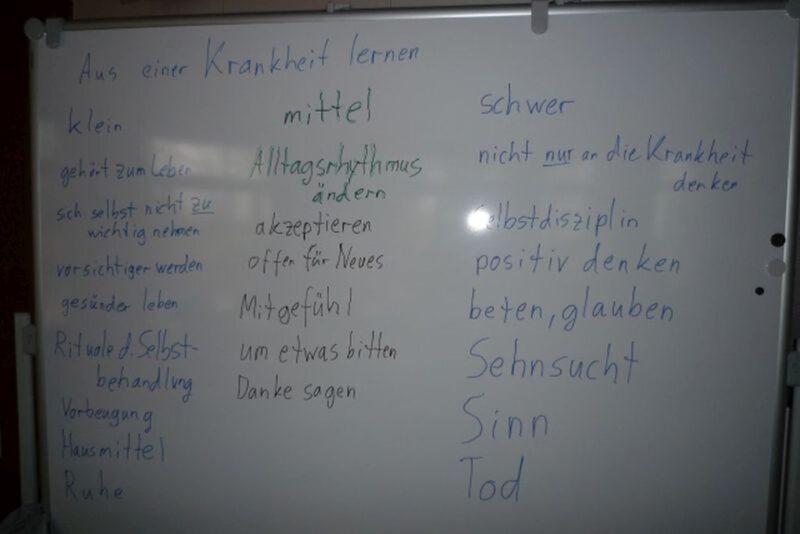 Aus einer Krankheit lernen
klein
gehört zum Leben
sich selbst nicht zu
wichtig nehmen
vorsichtiger werden
gesünder leben
Rituale d. Selbst-
behandlung
Vorbeugung
Hausmittel
Ruhe
mittel
Alltagsrhythmus
ändern
akzeptieren
offen für Neues
Mitgefühl
um etwas bitten
Danke sagen
schwer
nicht nur an die Krankheit
denken
Selbstdisziplin
positiv denken
beten, glauben
Sehnsucht
Sinn
Tod